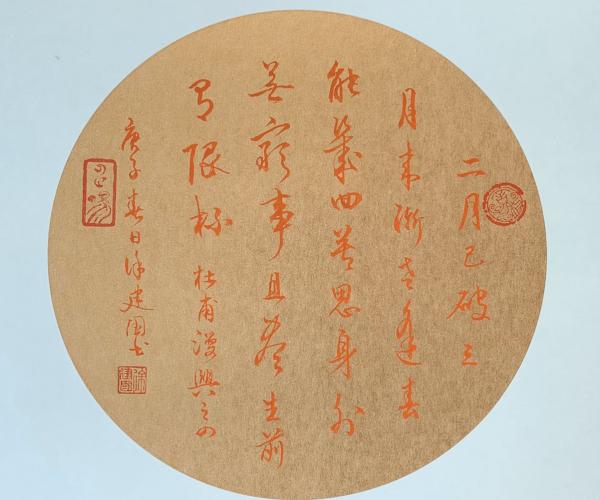 二月已破三
月来漸老逢春
能幾回莫思身外
無窮事且盡生前
有限杯 杜甫漫興之四
庚子春日徐建国书